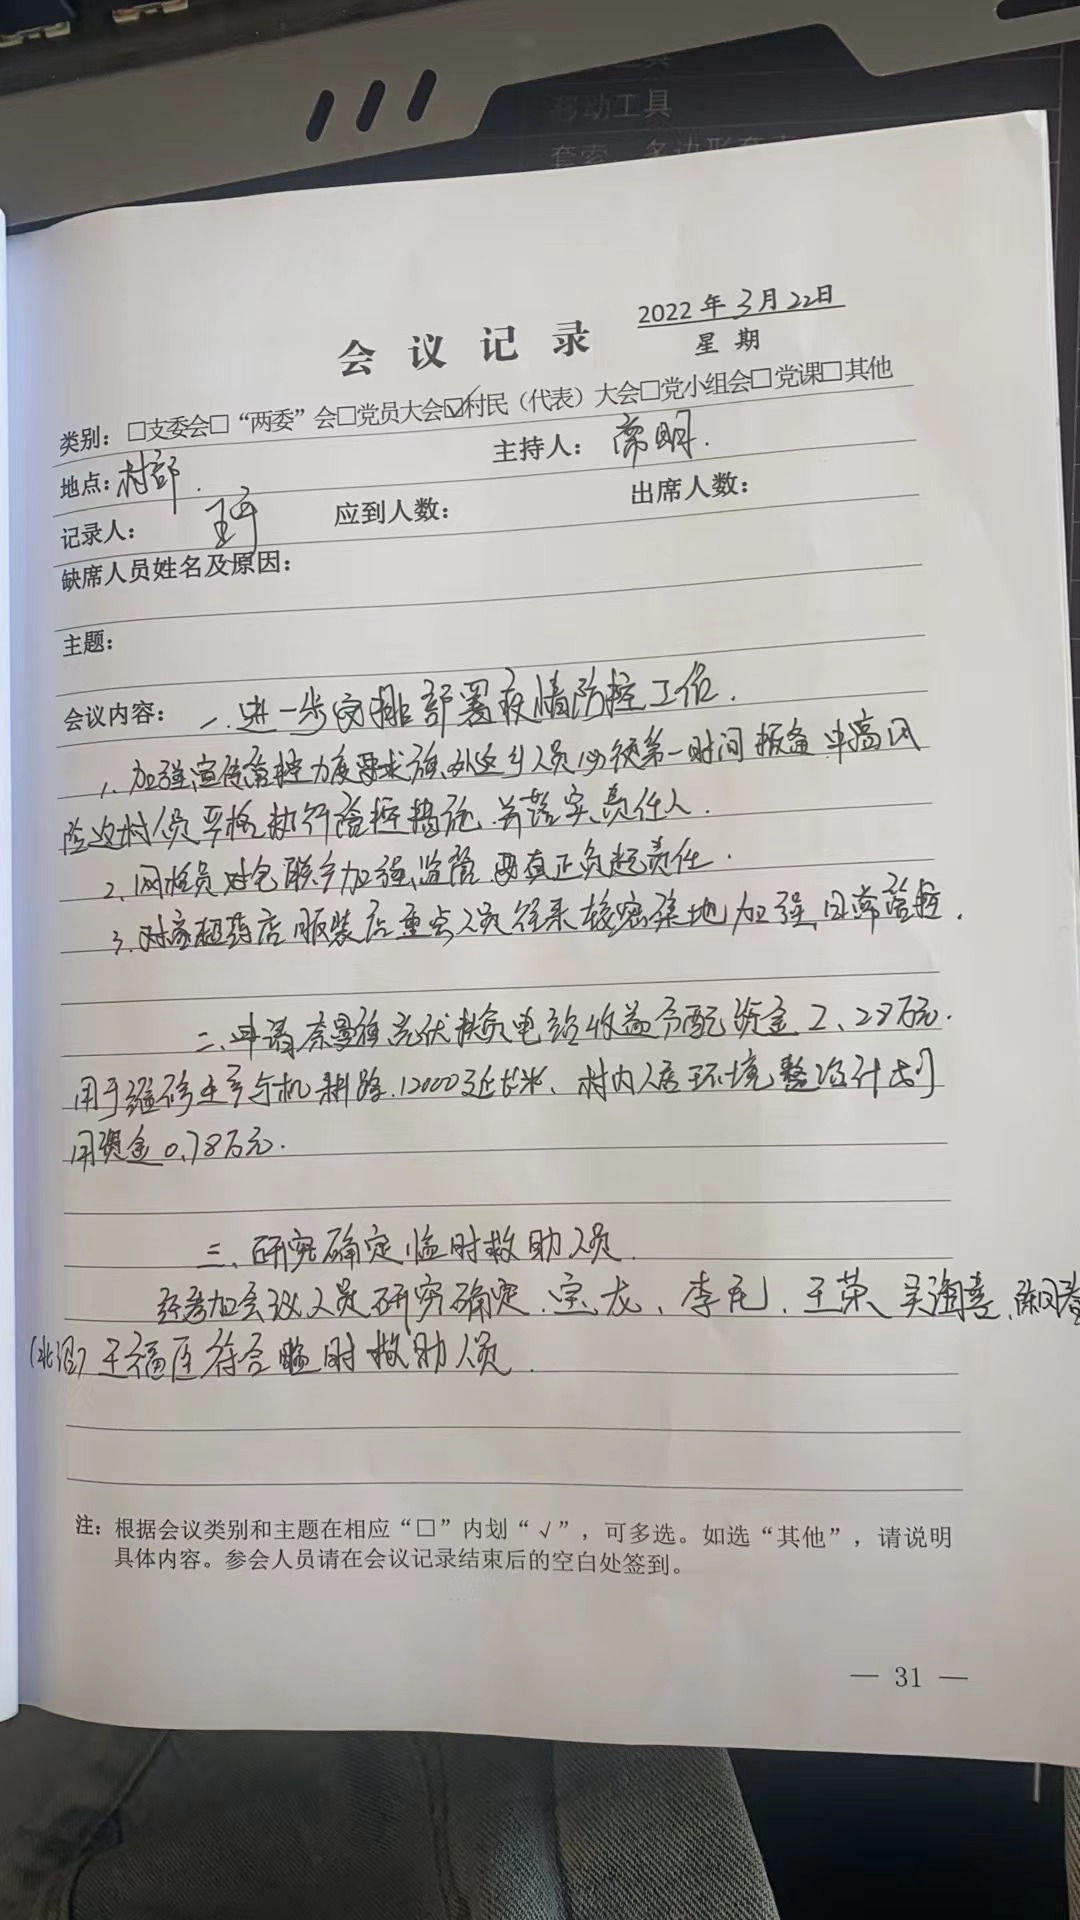 移动工具
套索
2022 年 3月22日
会 议 记 录
星 期
类别：□支委会□“两委”会□党员大会☑村民（代表）大会□党小组会□党课□其他
地点：村部. 主持人：常明.
记录人： 应到人数： 出席人数：
缺席人员姓名及原因：
主题：
会议内容：一.进一步安排部署疫情防控工作.
1、加强宣传管控力度要求旗外返乡人员必须第一时间报备中高风
险返村人员严格执行管控措施.并落实责任人.
2、网格员对包联户加强监管要真正负起责任.
3、对家超药店服装店重点人员往来较密集地加强日常管控.
二、申请奈曼旗光伏扶贫电站收益分配资金2、28万元.
用于维修主亍与机耕路.12000延长米、村内人居环境整治计划
用资金0.78万元.
三、研究确定临时救助人员.
经参加会议人员研究确定.宝龙、李 .王荣 吴海
王福 符合临时救助人员.
注：根据会议类别和主题在相应“□”内划“√”，可多选。如选“其他”，请说明
具体内容。参会人员请在会议记录结束后的空白处签到。
— 31 —